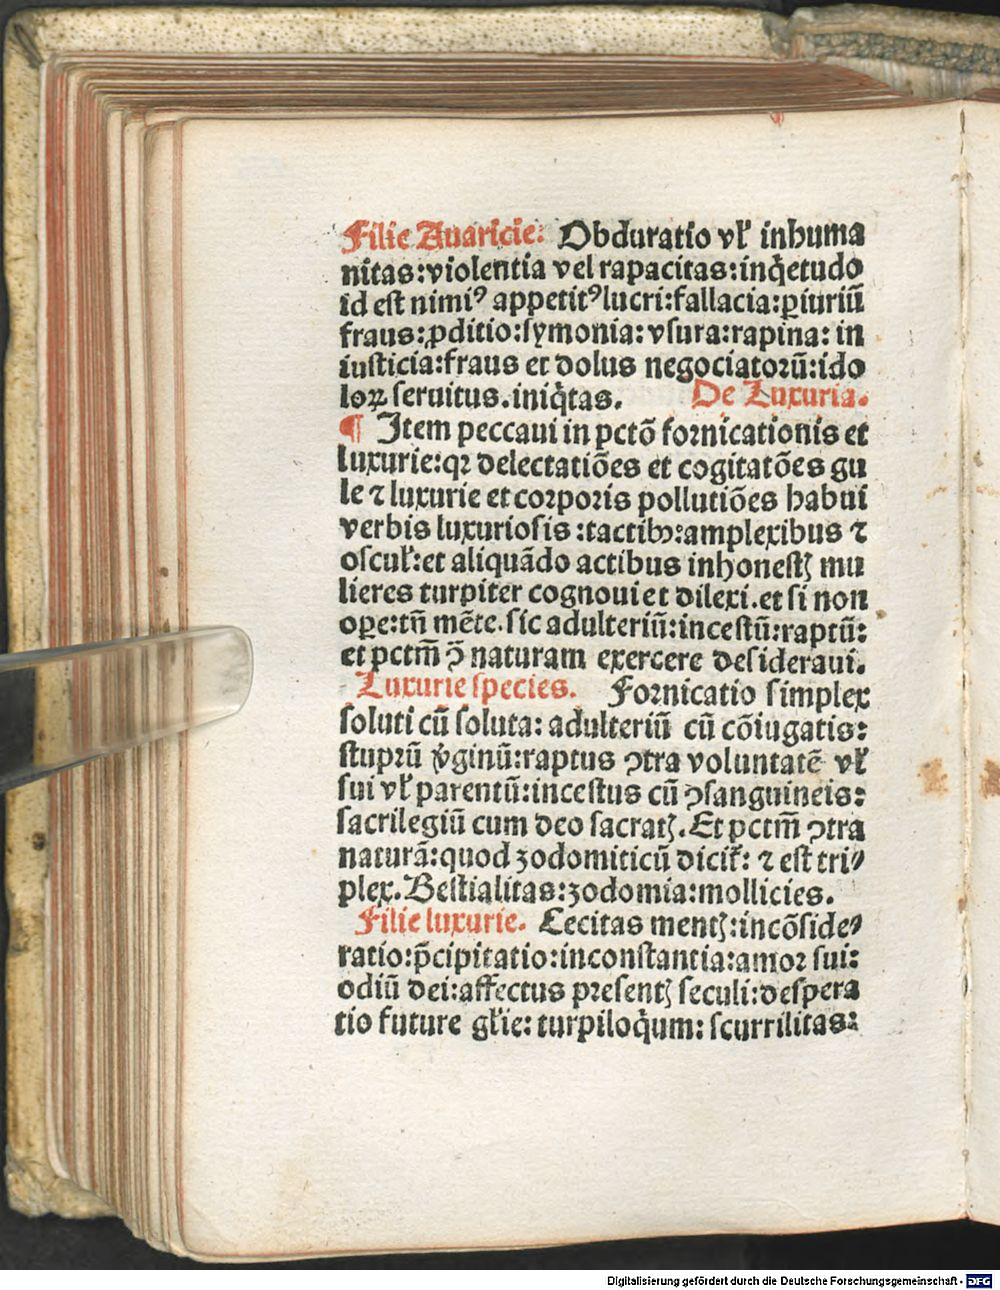 Filie Auaricie. Obduratio vł inhuma
nitas:violentia vel rapacitas:inq̇etudo
id est nimiꝰ appetitꝰ lucri:fallacia:ꝑiuriū
fraus:ꝓditio:symonia:vsura:rapina: in
iusticia:fraus et dolus negociatoꝛū:ido
loꝝ seruitus.iniq̇tas. De Luxuria.
¶ Item peccaui in pctō foꝛnicationis et
luxurie:qꝛ delectatiōes et cogitatōes gu
le ⁊ luxurie et coꝛpoꝛis pollutiōes habui
verbis luxuriosis:tactibꝫ:amplexibus ⁊
oscuł:et aliquādo actibus inhonestꝭ mu
lieres turpiter cognoui et dilexi.et si non
oꝑe:tñ mēte.sic adulteriū:incestū:raptū:
et pctm̄ ꝯ̄ naturam exercere desideraui.
Luxurie species. Foꝛnicatio simplex
soluti cū soluta: adulteriū cū cōiugatis:
stupꝛū v̇ginū:raptus ꝯtra voluntatē vł
sui vł parentū:incestus cū ꝯsanguineis:
sacrilegiū cum deo sacratꝭ.Et pctm̄ ꝯtra
naturā:quod zodomiticū dicit̄: ⁊ est tri⸗
plex.Bestialitas:zodomia:mollicies.
Filie luxurie. Cecitas mentꝭ:incōside⸗
ratio:p̄cipitatio:inconstantia:amoꝛ sui:
odiū dei:affectus pꝛesentꝭ seculi:despera
tio future głie: turpiloq̇um: scurrilitas:
Digitalisierung gefördert durch die Deutsche Forschungsgemeinschaft - DFG